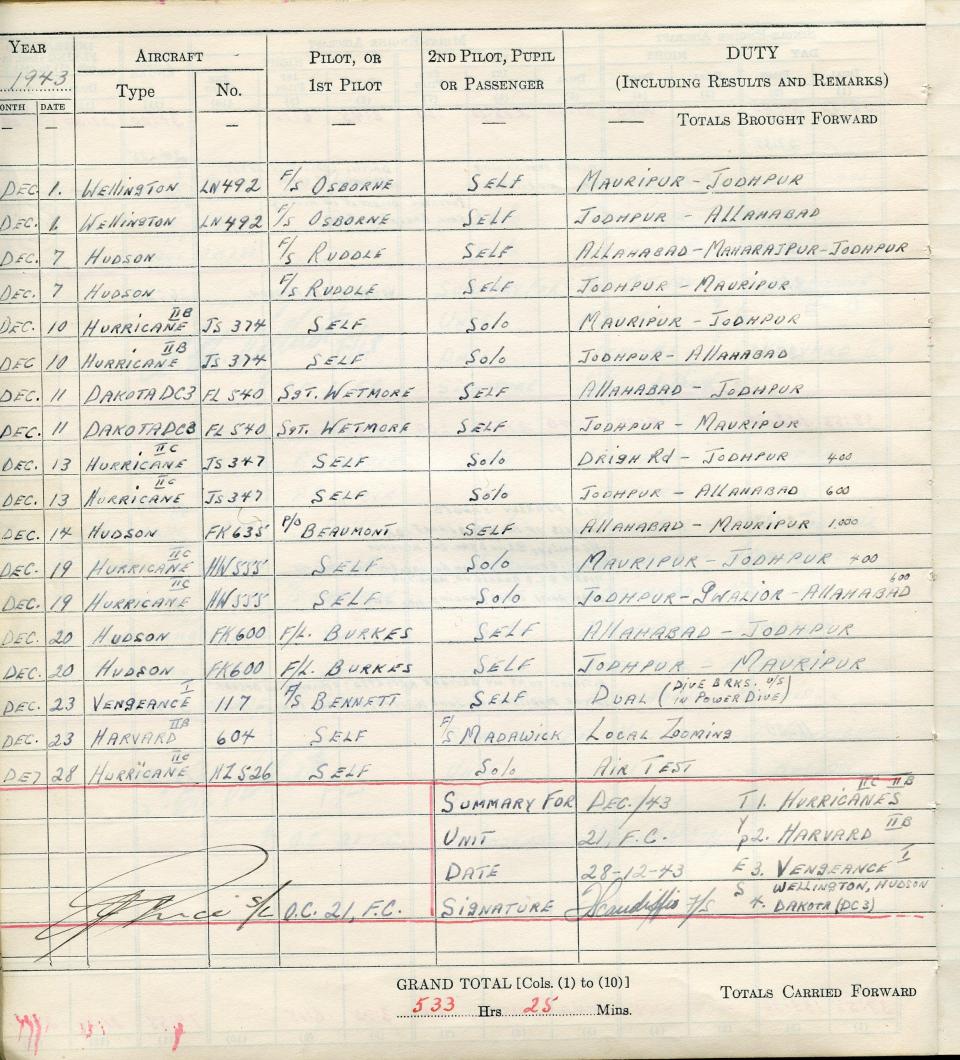 YEAR AIRCRAFT PILOT, OR 2ND PILOT, PUPIL DUTY
1943 Type No. 1ST PILOT OR PASSENGER (INCLUDING RESULTS AND REMARKS)
ONTH DATE
— — — — — — —— TOTALS BROUGHT FORWARD
DEC. 1. WELLINGTON LN492 F/S OSBORNE SELF MAURIPUR - JODHPUR
DEC. 1. WELLINGTON LN492 F/S OSBORNE SELF JODHPUR - ALLAHABAD
DEC. 7 HUDSON F/S RUDDLE SELF ALLAHABAD-MAHARAJPUR-JODHPUR
DEC. 7 HUDSON F/S RUDDLE SELF JODHPUR - MAURIPUR
DEC. 10 HURRICANE IIB JS 374 SELF Solo MAURIPUR - JODHPUR
DEC 10 HURRICANE IIB JS 374 SELF Solo JODHPUR - ALLAHABAD
DEC. 11 DAKOTA DC3 FL 540 SGT. WETMORE SELF ALLAHABAD - JODHPUR
DEC. 11 DAKOTA DC3 FL 540 SGT. WETMORE SELF JODHPUR - MAURIPUR
DEC. 13 HURRICANE IIC JS347 SELF Solo DRIGH Rd - JODHPUR 400
DEC. 13 HURRICANE IIC JS347 SELF Solo JODHPUR - ALLAHABAD 600
DEC. 14 HUDSON FK635 P/O BEAUMONT SELF ALLAHABAD - MAURIPUR 1,000
DEC. 19 HURRICANE IIC HW555 SELF Solo MAURIPUR - JODHPUR 400
DEC. 19 HURRICANE IIC HW555 SELF Solo JODHPUR-GWALIOR-ALLAHABAD 600
DEC. 20 HUDSON FK600 F/L. BURKES SELF ALLAHABAD - JODHPUR
DEC. 20 HUDSON FK600 F/L. BURKES SELF JODHPUR - MAURIPUR
DEC. 23 VENGEANCE I 117 F/S BENNETT SELF DUAL (DIVE BRKS. U/S IN POWER DIVE)
DEC. 23 HARVARD IIB 604 SELF F/S MADAWICK LOCAL ZOOMING
28 HURRICANE IIC HL526 SELF Solo AIR TEST
SUMMARY FOR DEC./43 T 1. HURRICANES IIC IIB
UNIT 21, F.C. Y P 2. HARVARD IIB
DATE 28-12-43 E 3. VENGEANCE I
S WELLINGTON, HUDSON
S/L O.C. 21, F.C. SIGNATURE F/S 4. DAKOTA (DC3)
GRAND TOTAL [Cols. (1) to (10)]
533 Hrs. 25 Mins. TOTALS CARRIED FORWARD